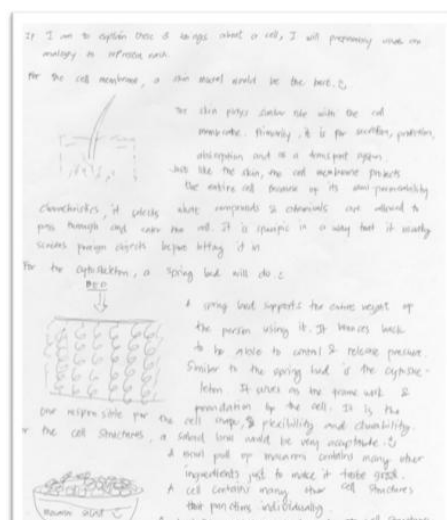 If I am to explain these 3 things about a cell, I will preferrably use an
analogy to represent each.
For the cell membrane, a skin would be the best.
The skin plays similar role with the cell
membrane. Primarily, it is for secretion, protection,
absorption and as a transport system.
Just like the skin, the cell membrane protects
the entire cell because of its semi-permeability
characteristics, it selects what compounds & chemicals are allowed to
pass through and enter the cell. It is specific in a way that it
screens foreign objects before letting it in
For the cytoskeleton, a spring bed will do.
BED
A spring bed supports the entire weight of
the person using it. It bounces back
to be able to control & release pressure.
Similar to the spring bed is the cytoske-
leton. It serves as the frame work &
foundation of the cell. It is the
one responsible for the cell shape, & flexibility and durability.
the cell structures, a salad bowl would be very acceptable.
A bowl full of macaroni contains many other
ingredients just to make it taste good.
A cell contains many other cell structures
that functions individually.
macaroni salad
cell structure